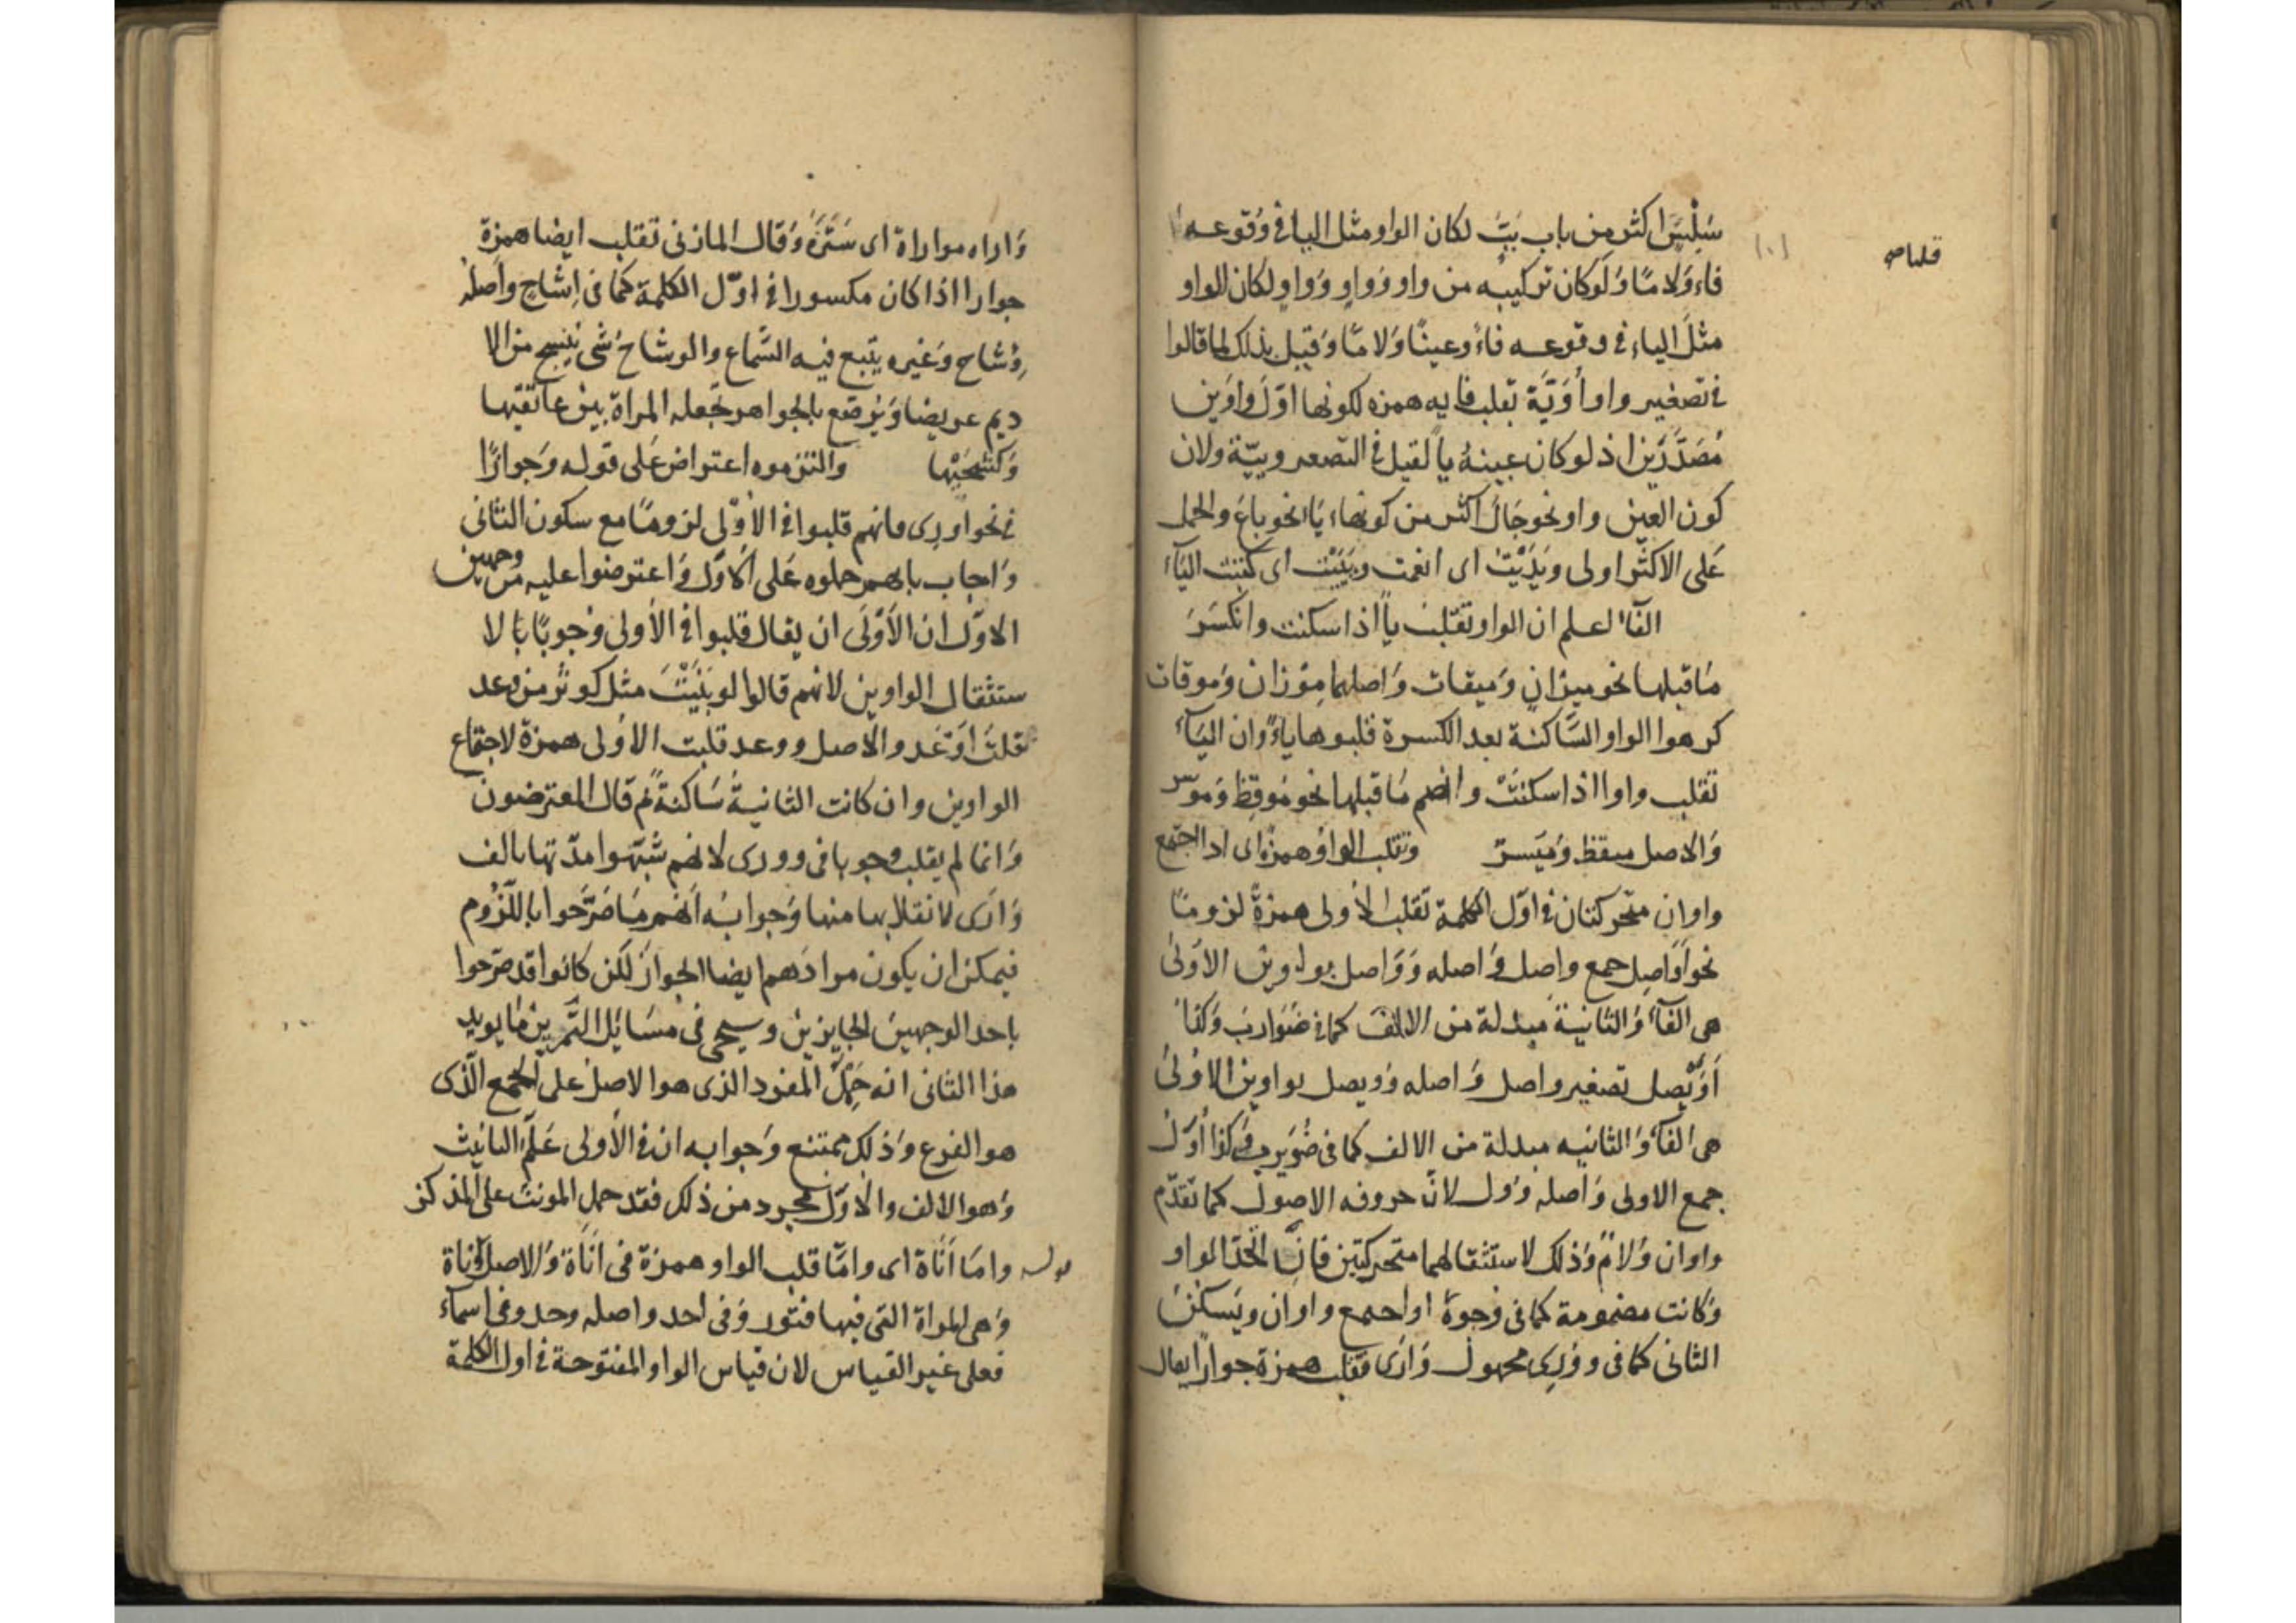 سَلِسَ اكثر من باب بَبّ لكان الواو مثل اليا فى وقوعه
فاء وَلامًا وَلوكان تركيبه من واو وَواوٍ وَواوٍ لكان للواو
مثلَ الياء فى وقوعه فاءً وعينًا وَلامًا وَقيل بذلك لما قالوا
فى تصغير واو أُوَيَّة بقلب فايه همزه لكونها اوّلَ واوَين
مُصَدَّرَين اذ لو كان عينهُ ياً لقيل فى التصعير وييّة ولان
كون العين واو نحو جَالَ اكثر من كونها يَا نحو باعَ والحمل
عَلى الاكثر اولى ويَدَيْتُ اى انعمت ويَيَّيْتُ اى كتبت اليَآءَ
الفآء اعلم ان الواو تقلب ياً اذا سكنت وانكسَرَ
مَا قبلها نحو ميزانٍ وَميقات وَاصلهما مِوْزان وَموقات
كرهوا الواو السَّاكنة بعد الكسرة قلبوها ياءً وان اليَآء
تقلب واوا اذا سكنَتْ وانضم مَا قبلها نحو مُوقِظ وَموسر
وَالاصل ميقظ وَمُيَسرٌ وتقلب الواو همزةً اى اذا اجتمع
واوان متحركتان فى اوّل الكلمة تقلب الأولى همزةً لزومًا
نحو اَوَاصِل جمع واصل وَاصله وَوَاصل بواوين الاوَلى
هى الفآء وَالثانية مبدلة من الالف كما فى ضَوَاربَ وَكذا
اُوَيْصل تصغير واصل وَاصله وُويصل بواوين الاوُلىَ
هى الفآء وَالثانيه مبدلة من الالف كما فى ضُوَيرب وَكذا اُوَل
جمع الاولى وَاصله وُوَل لانّ حروفه الاصول كما تقدّم
واوان وَلامٌ وَذلك لاستثقالهما متحركتين فانّ اتّحد الواو
وَكانت مضمومة كما فى وُجوهٌ او اجتمع واوان ويَسكنُ
الثانى كما فى وُورِى مجهول وَارَى تقلب همزة جوازًا يقال
قلباه
وَاراه مواراة اى سَتَرَهُ وَقال المازنى تقلب ايضا همزة
جوازا اذا كان مكسورا فى اوّل الكلمة كما فى اِشاح وَاصله
وِشاح وَغيره يتّبع فيه السَّماع والوشاح شى يُنسج من الا
ديم عريضا وَيُرصّع بالجواهر تجعله المراة بين عاتقيها
وَكشحَيْها والتزموه اعتراض عَلى قوله وَجوازًا
فى نحو اورى فانهم قلبوا فى الاوّلى لزومًا مع سكون الثانى
وَاجاب بانهم حملوه عَلى الأوَّل وَاعترضوا عليه من وجهين
الاوّل ان الأَوْلَى ان يقال قلبوا فى الأولى وجوبًا بالا
ستثقال الواوين لانهم قالوا لو بَنَيْتَ مثل كوثر من وعد
قلتَ اَوْعَد والاصل ووعد قلبت الأولى همزة لاجتماع
الواوين وان كانت الثانيةُ سَاكنةً ثم قال المعترضون
وَانما لم يقلب وجوبا فى وورى لانهم شبّهوا مدّتها بالف
وَارَى لانقلابها منها وَجوابُه اَنهم مَا صَرَّحوا باللّزُوم
فيمكن ان يكون مرادهم ايضا الجوازَ لكن كانوا قد صرّحوا
باحد الوجهين الجايزين وسيجى فى مسَائل التَّمرين مَا يويد
هذا الثانى انه حَملُ المفرد الذى هوا لاصل على الجمع الّذى
هو الفرع وَذلك ممتنع وَجوابه ان فى الأولى عَلَمَ التانيث
وَهو الالف والاوّل مجرد من ذلك فقد حمل المونث على المذكر
قوله وامّا أَنَاة اى وامّا قلب الواو همزة فى اَنَاة وَالاصل وَناة
وَهى المراة التى فيها فتور وَفى احد واصله وحد وفى اسماء
فعلى غير القياس لان قياس الواو المفتوحة فى اول الكلمة